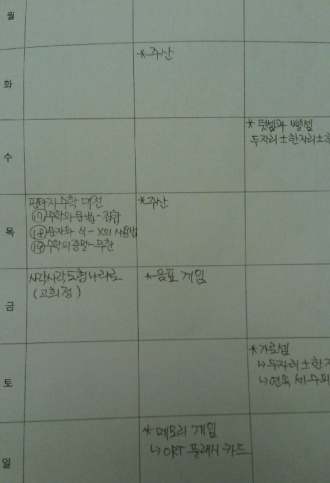 월
* 주산
화
* 덧셈과 뺄셈
두자리±한자리±
수
판타지수학 대전
* 주산
⑰수학의 문법-집합
⑱문자와 식-X의 사용법
목
⑲수학의 종말-무한
사각사각 도형나라로
(고희정)
*음표 게임
금
*가로셈
↳두자리±한자
↳연속 세 수의
토
*메모리 게임
↳ORT 플래시카드
일